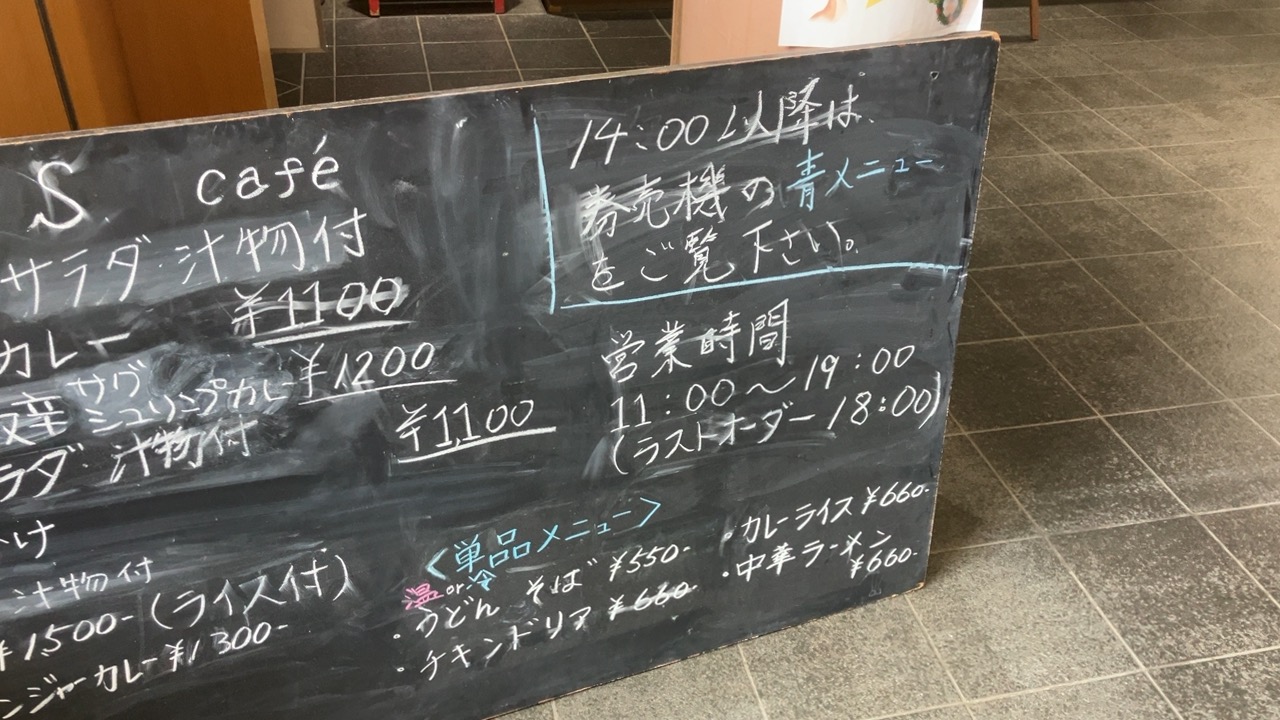 S café
サラダ・汁物付
¥1100
カレー
産 サグシュリンプカレー ¥1200
ラダ・汁物付 ¥1,100
け
汁物付
¥1500-(ライス付)
ンジャーカレー ¥1300-
14:00以降は、
券売機の青メニュー
をご覧下さい。
営業時間
11:00～19:00
(ラストオーダー 18:00)
<単品メニュー>
温or冷
・うどん そば ¥550-
・チキンドリア ¥660-
・カレーライス ¥660-
・中華ラーメン
¥660-